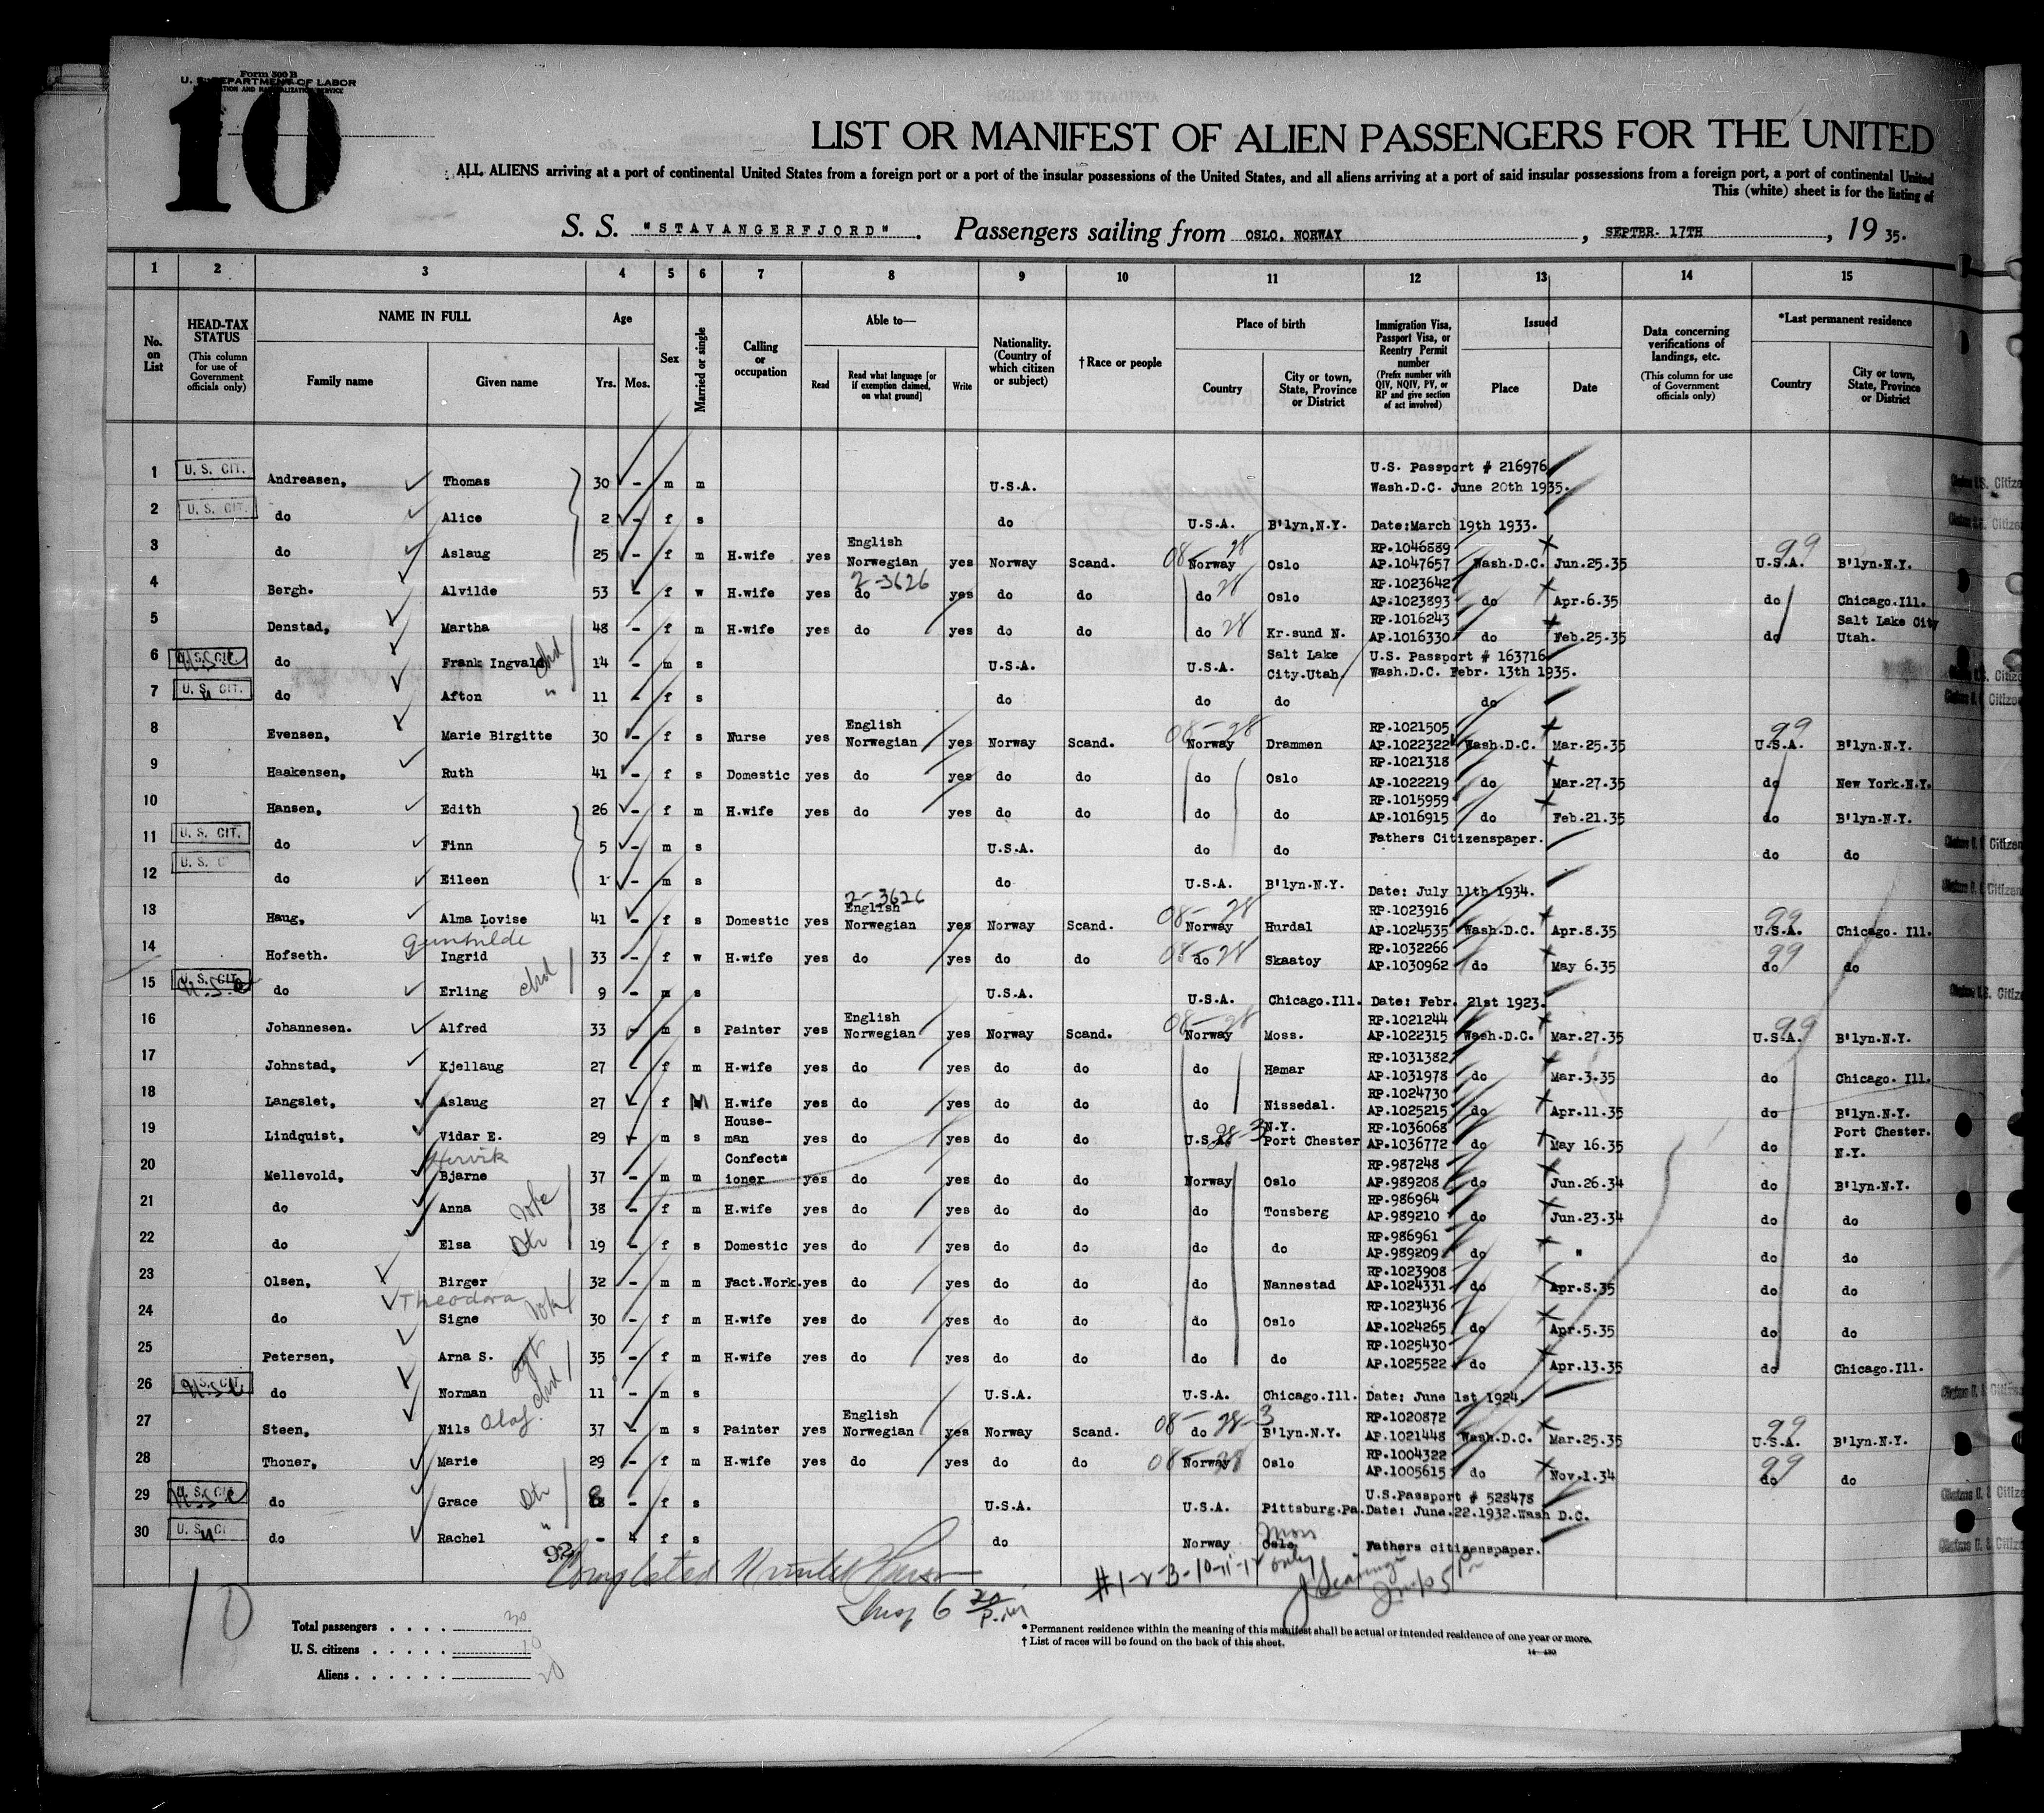 Form 500 B
U. S. DEPARTMENT OF LABOR
10
LIST OR MANIFEST OF ALIEN PASSENGERS FOR THE UNITED
ALL ALIENS arriving at a port of continental United States from a foreign port or a port of the insular possessions of the United States, and all aliens arriving at a port of said insular possessions from a foreign port, a port of continental United
This (white) sheet is for the listing of
S. S. "STAVANGERFJORD". Passengers sailing from OSLO, NORWAY, SEPTBR. 17TH, 1935.
1 2 3 4 5 6 7 8 9 10 11 12 13 14 15
No. on List
HEAD-TAX STATUS (This column for use of Government officials only)
NAME IN FULL
Family name Given name
Age
Yrs. Mos.
Sex
Married or single
Calling or occupation
Able to—
Read Read what language [or if exemption claimed, on what ground] Write
Nationality. (Country of which citizen or subject)
†Race or people
Place of birth
Country City or town, State, Province or District
Immigration Visa, Passport Visa, or Reentry Permit number (Prefix number with QIV, NQIV, PV, or RP and give section of act involved)
Issued
Place Date
Data concerning verifications of landings, etc. (This column for use of Government officials only)
*Last permanent residence
Country City or town, State, Province or District
1 U. S. CIT. Andreasen, Thomas 30 - m m U.S.A. U.S. Passport # 216976 Wash.D.C. June 20th 1935.
2 U. S. CIT. do Alice 2 - f s do U.S.A. B'lyn,N.Y. Date:March 19th 1933.
3 do Aslaug 25 - f m H.wife yes English Norwegian yes Norway Scand. 08-28 Norway Oslo RP.1046889 AP.1047657 Wash.D.C. Jun.25.35 99 U.S.A. B'lyn.N.Y.
4 Bergh. Alvilde 53 - f w H.wife yes 2-3626 do yes do do do 28 Oslo RP.1023642 AP.1023893 do Apr.6.35 do Chicago.Ill.
5 Denstad, Martha 48 - f m H.wife yes do yes do do do 28 Kr.sund N. RP.1016243 AP.1016330 do Feb.25.35 do Salt Lake City Utah.
6 U.S. CIT do Frank Ingvald chd 14 - m s U.S.A. U.S.A. Salt Lake City.Utah. U.S. Passport # 163716 Wash.D.C. Febr. 13th 1935.
7 U. S. CIT. do Afton " 11 - f s do do do do
8 Evensen, Marie Birgitte 30 - f s Nurse yes English Norwegian yes Norway Scand. 08-28 Norway Drammen RP.1021505 AP.1022322 Wash.D.C. Mar.25.35 99 U.S.A. B'lyn.N.Y.
9 Haakensen, Ruth 41 - f s Domestic yes do yes do do do Oslo RP.1021318 AP.1022219 do Mar.27.35 do New York.N.Y.
10 Hansen, Edith 26 - f m H.wife yes do yes do do do do RP.1015959 AP.1016915 do Feb.21.35 do B'lyn.N.Y.
11 U. S. CIT. do Finn 5 - m s U.S.A. do do Fathers Citizenspaper. do do
12 U. S. C do Eileen 1 - m s do U.S.A. B'lyn.N.Y. Date: July 11th 1934.
13 Haug, Alma Lovise 41 - f s Domestic yes 2-3626 English Norwegian yes Norway Scand. 08-28 Norway Hurdal RP.1023916 AP.1024535 Wash.D.C. Apr.8.35 99 U.S.A. Chicago. Ill.
14 Hofseth. Gunhilde Ingrid 33 - f w H.wife yes do yes do do 08-28 do Skaatoy RP.1032266 AP.1030962 do May 6.35 99 do do
15 U. S. CIT. do Erling chd 9 - m s U.S.A. U.S.A. Chicago.Ill. Date: Febr. 21st 1923.
16 Johannesen. Alfred 33 - m s Painter yes English Norwegian yes Norway Scand. 08-28 Norway Moss. RP.1021244 AP.1022315 Wash.D.C. Mar.27.35 99 U.S.A. B'lyn.N.Y.
17 Johnstad, Kjellaug 27 - f m H.wife yes do yes do do do Hamar RP.1031382 AP.1031978 do Mar.3.35 do Chicago. Ill.
18 Langslet, Aslaug 27 - f M H.wife yes do yes do do do Nissedal. RP.1024730 AP.1025215 do Apr.11.35 do B'lyn.N.Y.
19 Lindquist, Vidar E. 29 - m s House-man yes do yes do do U.S.A. 28-3 N.Y. Port Chester RP.1036068 AP.1036772 do May 16.35 do Port Chester. N.Y.
20 Mellevold, Bjarne 37 - m m Confect=ioner yes do yes do do Norway Oslo RP.987248 AP.989208 do Jun.26.34 do B'lyn.N.Y.
21 do Anna wfe 38 - f m H.wife yes do yes do do do Tonsberg RP.986964 AP.989210 do Jun.23.34 do do
22 do Elsa Dtr 19 - f s Domestic yes do yes do do do do RP.986961 AP.989209 do " do do
23 Olsen, Birger 32 - m m Fact.Work. yes do yes do do do Nannestad RP.1023908 AP.1024331 do Apr.8.35 do do
24 do Theodora Signe wfe 30 - f m H.wife yes do yes do do do Oslo RP.1023436 AP.1024265 do Apr.5.35 do do
25 Petersen, Arna S. 35 - f m H.wife yes do yes do do do do RP.1025430 AP.1025522 do Apr.13.35 do Chicago.Ill.
26 U.S. CIT. do Norman chd 11 - m s U.S.A. U.S.A. Chicago.Ill. Date: June 1st 1924.
27 Steen, Nils Olaf. 37 - m s Painter yes English Norwegian yes Norway Scand. 08-28-3 do B'lyn.N.Y. RP.1020872 AP.1021448 Wash.D.C. Mar.25.35 99 U.S.A. B'lyn.N.Y.
28 Thoner, Marie 29 - f m H.wife yes do yes do do 08-28 Norway Oslo RP.1004322 AP.1005615 do Nov.1.34 99 do do
29 U. S. CIT do Grace Dtr 8 - f s U.S.A. U.S.A. Pittsburg.Pa. U.S.Passport # 528478 Date: June.22.1932.Wash D.C.
30 U. S. CI do Rachel " - 4 f s do Norway Moss Oslo Fathers citizenspaper.
Completed
#1-2-3-10-11-12 only
Insp
10
Total passengers . . . . 30
U. S. citizens . . . . . 10
Aliens . . . . . . 20
* Permanent residence within the meaning of this manifest shall be actual or intended residence of one year or more.
† List of races will be found on the back of this sheet.
14-430